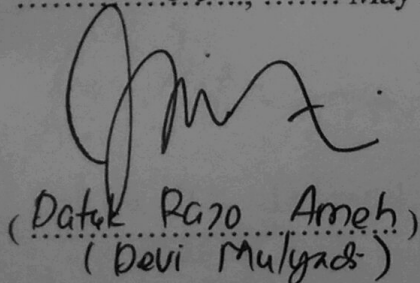 ...................., ........ May
(Datuk Rajo Ameh)
(Devi Mulyadi)